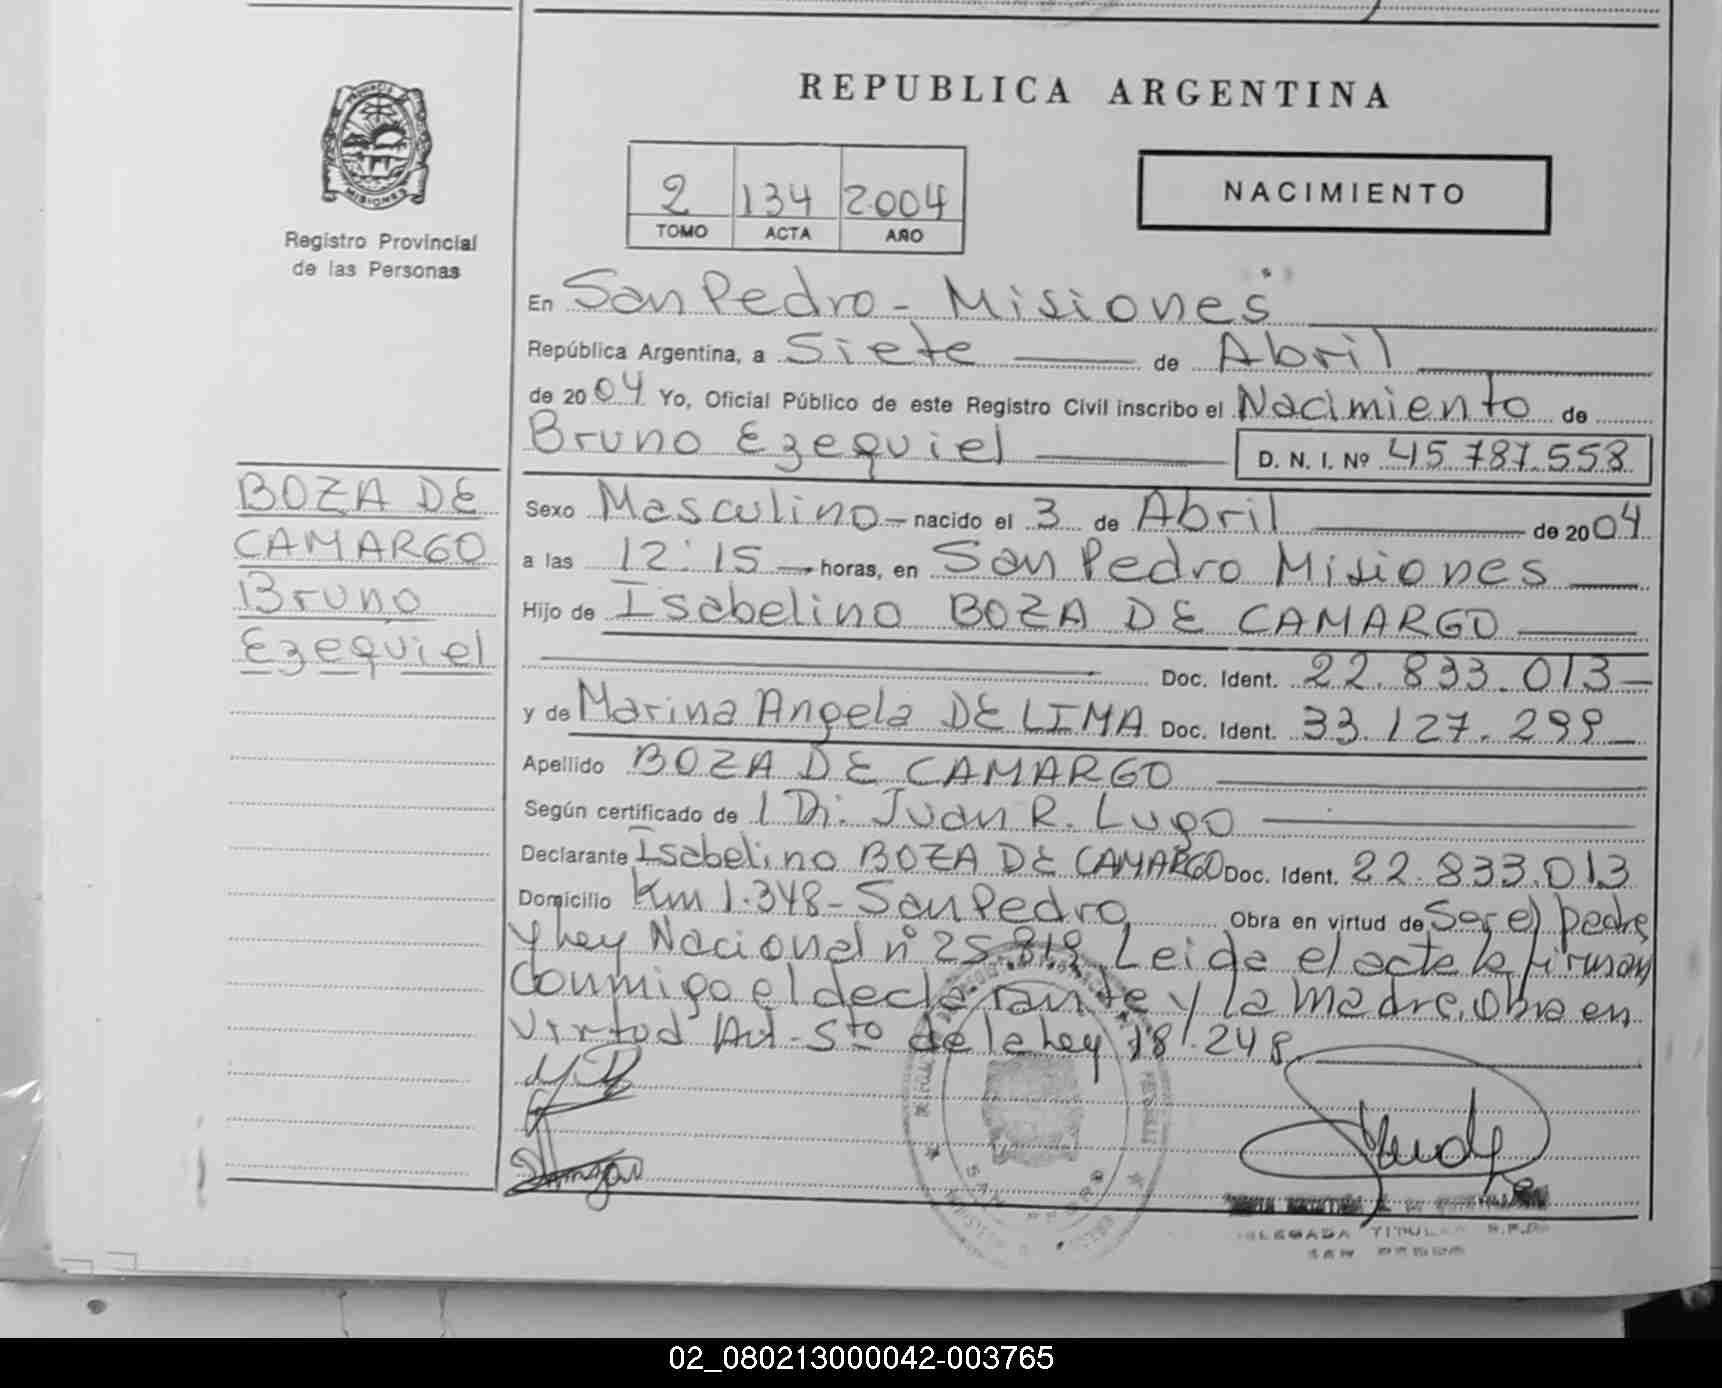 REPUBLICA ARGENTINA
2 134 2004
TOMO ACTA AÑO
NACIMIENTO
MISIONES
Registro Provincial
de las Personas
BOZA DE
CAMARGO
Bruno
Ezequiel
En San Pedro - Misiones
República Argentina, a Siete de Abril
de 2004 Yo, Oficial Público de este Registro Civil inscribo el Nacimiento de
Bruno Ezequiel D. N. I. Nº 45.787.558
Sexo Masculino - nacido el 3 de Abril de 2004
a las 12:15 horas, en San Pedro Misiones
Hijo de Isabelino BOZA DE CAMARGO
Doc. Ident. 22.833.013
y de Marina Angela DE LIMA Doc. Ident. 33.127.299
Apellido BOZA DE CAMARGO
Según certificado de Juan R. Lugo
Declarante Isabelino BOZA DE CAMARGO Doc. Ident. 22.833.013
Domicilio Km 1.348 - San Pedro Obra en virtud de Ser el padre
y ley Nacional nº 25.819 Leida el acta la firman
conmigo el declarante y la madre. Obra en
virtud Art. 5to de la Ley 18.248
TITULAR
02_080213000042-003765